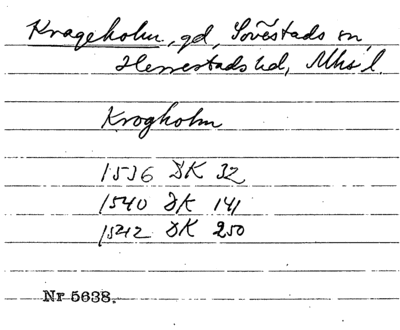 Krageholm, gd, Sövestads sn,
Herrestads hd, Mhs l.
Krogholm
1536 DK 32
1540 DK 141
1542 DK 250
Nr 5638.